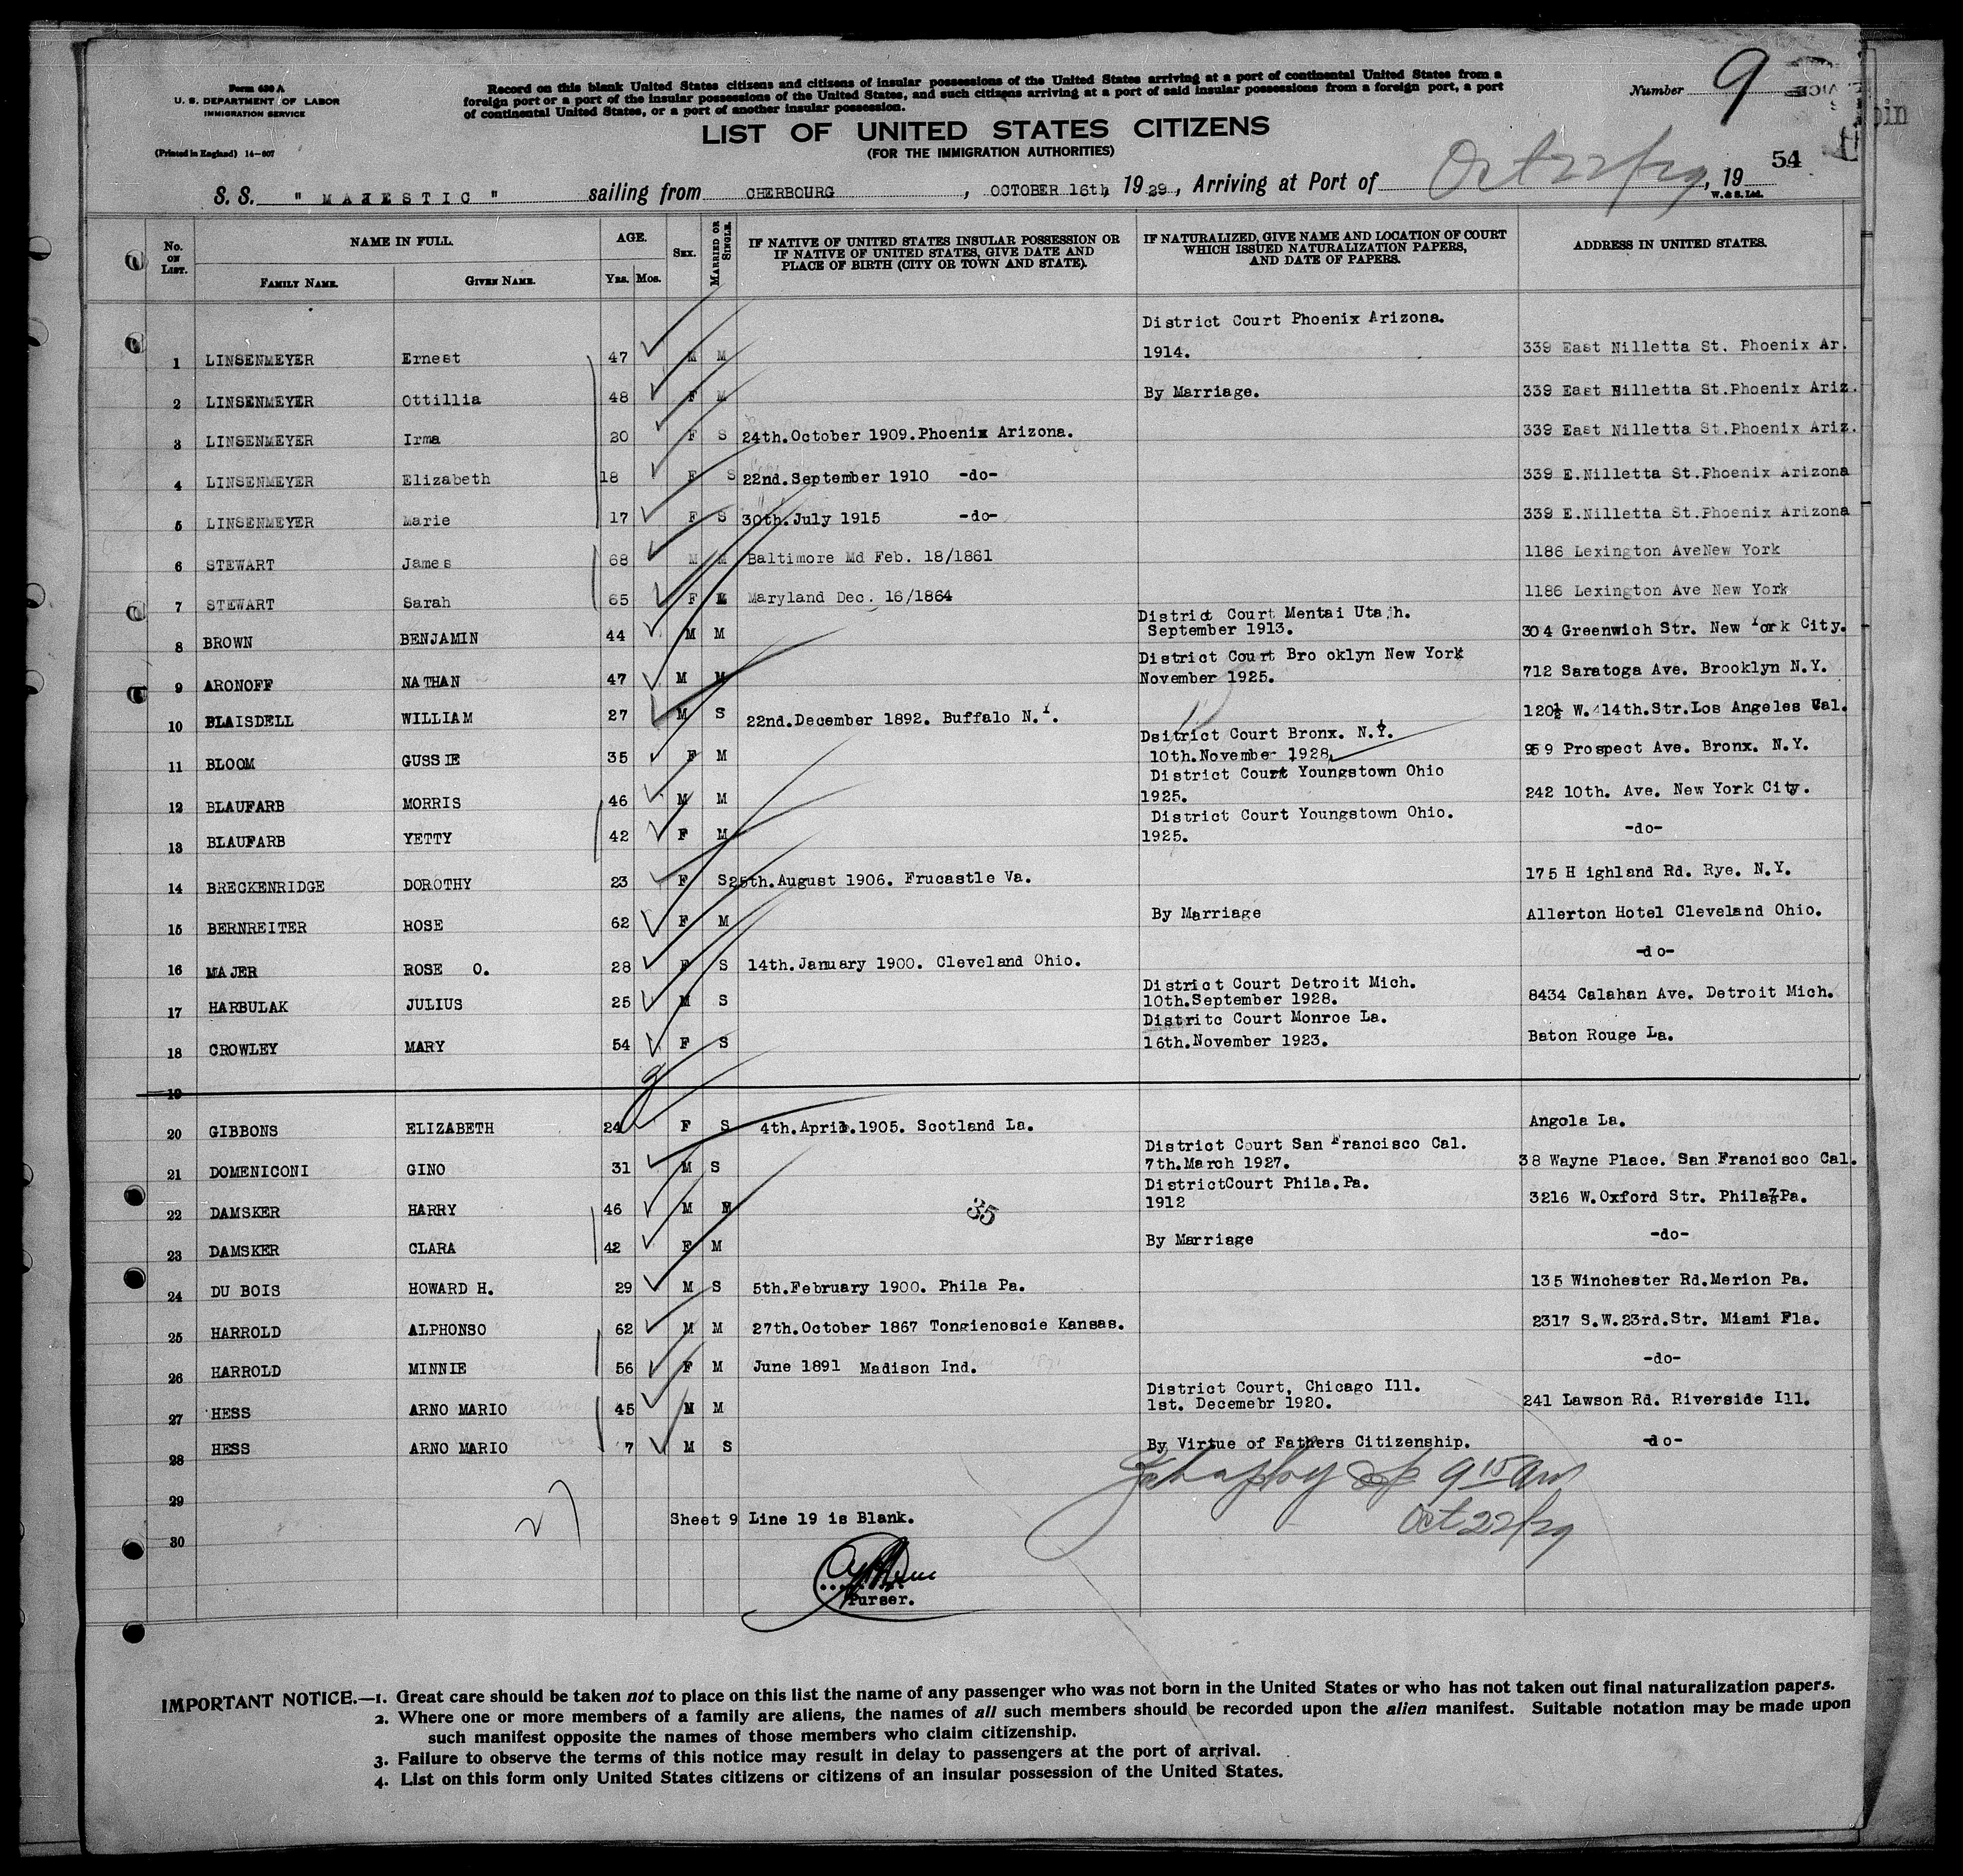 Form 630 A
U. S. DEPARTMENT OF LABOR
IMMIGRATION SERVICE
(Printed in England) 14—607
Record on this blank United States citizens and citizens of insular possessions of the United States arriving at a port of continental United States from a
foreign port or a port of the insular possessions of the United States, and such citizens arriving at a port of said insular possessions from a foreign port, a port
of continental United States, or a port of another insular possession.
Number 9
LIST OF UNITED STATES CITIZENS
(FOR THE IMMIGRATION AUTHORITIES)
54
S. S. " MAJESTIC " sailing from CHERBOURG , OCTOBER 16th, 1929, Arriving at Port of Oct 22/29, 19
W. & S. Ltd.
No. ON LIST. NAME IN FULL. AGE. SEX. MARRIED OR SINGLE. IF NATIVE OF UNITED STATES INSULAR POSSESSION OR IF NATIVE OF UNITED STATES, GIVE DATE AND PLACE OF BIRTH (CITY OR TOWN AND STATE). IF NATURALIZED, GIVE NAME AND LOCATION OF COURT WHICH ISSUED NATURALIZATION PAPERS, AND DATE OF PAPERS. ADDRESS IN UNITED STATES.
FAMILY NAME. GIVEN NAME. YRS. MOS.
1 LINSENMEYER Ernest 47 M M District Court Phoenix Arizona. 1914. 339 East Nilletta St. Phoenix Ar.
2 LINSENMEYER Ottillia 48 F M By Marriage. 339 East Nilletta St.Phoenix Ariz.
3 LINSENMEYER Irma 20 F S 24th.October 1909.Phoenix Arizona. 339 East Nilletta St.Phoenix Ariz.
4 LINSENMEYER Elizabeth 18 F S 22nd.September 1910 -do- 339 E.Nilletta St.Phoenix Arizona
5 LINSENMEYER Marie 17 F S 30th.July 1915 -do- 339 E.Nilletta St.Phoenix Arizona
6 STEWART James 68 M M Baltimore Md Feb. 18/1861 1186 Lexington AveNew York
7 STEWART Sarah 65 F M Maryland Dec. 16/1864 1186 Lexington Ave New York
8 BROWN BENJAMIN 44 M M District Court Mentai Utah. September 1913. 304 Greenwich Str. New York City.
9 ARONOFF NATHAN 47 M M District Court Bro oklyn New York November 1925. 712 Saratoga Ave. Brooklyn N.Y.
10 BLAISDELL WILLIAM 27 M S 22nd.December 1892. Buffalo N.Y. 120½ W. 14th.Str.Los Angeles Cal.
11 BLOOM GUSSIE 35 F M Dsitrict Court Bronx. N.Y. 10th.November 1928. 959 Prospect Ave. Bronx. N.Y.
12 BLAUFARB MORRIS 46 M M District Court Youngstown Ohio 1925. 242 10th. Ave. New York City.
13 BLAUFARB YETTY 42 F M District Court Youngstown Ohio. 1925. -do-
14 BRECKENRIDGE DOROTHY 23 F S 25th.August 1906. Frucastle Va. 175 H ighland Rd. Rye. N.Y.
15 BERNREITER ROSE 62 F M By Marriage Allerton Hotel Cleveland Ohio.
16 MAJER ROSE O. 28 F S 14th.January 1900. Cleveland Ohio. -do-
17 HARBULAK JULIUS 25 M S District Court Detroit Mich. 10th.September 1928. 8434 Calahan Ave. Detroit Mich.
18 CROWLEY MARY 54 F S Distritc Court Monroe La. 16th.November 1923. Baton Rouge La.
19
20 GIBBONS ELIZABETH 24 F S 4th.April.1905. Scotland La. Angola La.
21 DOMENICONI GINO 31 M S District Court San Francisco Cal. 7th.March 1927. 38 Wayne Place. San Francisco Cal.
22 DAMSKER HARRY 46 M M 35 DistrictCourt Phila.Pa. 1912 3216 W.Oxford Str. Phila.Pa.
23 DAMSKER CLARA 42 F M By Marriage -do-
24 DU BOIS HOWARD H. 29 M S 5th.February 1900. Phila Pa. 135 Winchester Rd.Merion Pa.
25 HARROLD ALPHONSO 62 M M 27th.October 1867 Tongienoscie Kansas. 2317 S.W.23rd.Str. Miami Fla.
26 HARROLD MINNIE 56 F M June 1891 Madison Ind. -do-
27 HESS ARNO MARIO 45 M M District Court, Chicago Ill. 1st. Decemebr 1920. 241 Lawson Rd. Riverside Ill.
28 HESS ARNO MARIO 7 M S By Virtue of Fathers Citizenship. -do-
9 15 am
29
Oct 22/29
27
Sheet 9 Line 19 is Blank.
30
Purser.
IMPORTANT NOTICE.—1. Great care should be taken not to place on this list the name of any passenger who was not born in the United States or who has not taken out final naturalization papers.
2. Where one or more members of a family are aliens, the names of all such members should be recorded upon the alien manifest. Suitable notation may be made upon
such manifest opposite the names of those members who claim citizenship.
3. Failure to observe the terms of this notice may result in delay to passengers at the port of arrival.
4. List on this form only United States citizens or citizens of an insular possession of the United States.